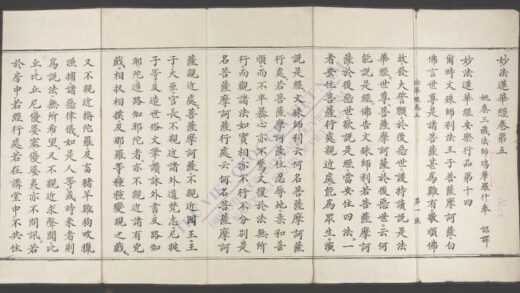 妙法蓮華經卷第五
姚秦三藏法師鳩摩羅什奉 詔譯
妙法蓮華經安樂行品第十四
爾時文殊師利法王子菩薩摩訶薩白
佛言世尊是諸菩薩甚為難有敬順佛
法華經卷五 第一張
故發大誓願於後惡世護持讀說是法
華經世尊菩薩摩訶薩於後惡世云何
能說是經佛告文殊師利若菩薩摩訶
薩於後惡世欲說是經當安住四法一
者安住菩薩行處親近處能為眾生演
說是經文殊師利云何名菩薩摩訶薩
行處若菩薩摩訶薩住忍辱地柔和善
順而不卒暴心亦不驚又復於法無所
行而觀諸法如實相亦不行不分別是
名菩薩摩訶薩行處云何名菩薩摩訶
薩親近處菩薩摩訶薩不親近國王王
子大臣官長不親近諸外道梵志尼揵
子等及造世俗文筆讚詠外書及路伽
耶陀逆路伽耶陀者亦不親近諸有兇
戲相扠相撲及那羅等種種變現之戲
又不親近旃陀羅及畜豬羊雞狗畋獵
漁捕諸惡律儀如是人等或時來者則
為說法無所希望又不親近求聲聞比
丘比丘尼優婆塞優婆夷亦不問訊若
於房中若經行處若在講堂中不共住